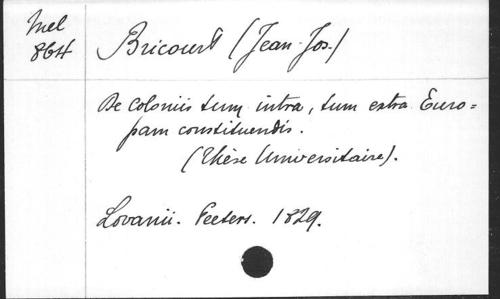 Mel
864
Bricourt (Jean-Jos.)
De coloniis tum intra, tum extra Euro=
pam constituendis.
(Thèse Universitaire).
Lovanii. Peeters. 1829.